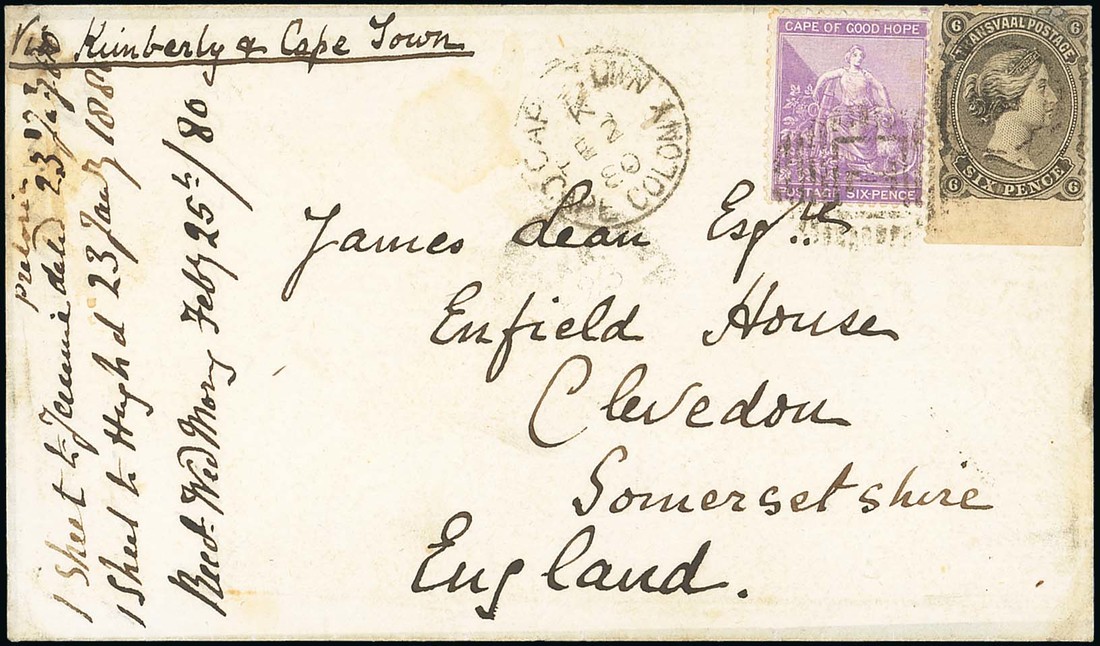 Via Kimberly & Cape Town
CAPE OF GOOD HOPE
POSTAGE SIX-PENCE
6 TRANSVAAL POSTAGE 6
6 SIX PENCE 6
CAPE TOWN CAPE COLONY
FE 2
80
James Lean Esqre
Enfield House
Clevedon
Somersetshire
England.
Pretoria
1 Sheet to Jemmie dated 23 Jany
1 Sheet to Hugh d 23 Jany 188
Recd. Wed Morng Feby 25th/80